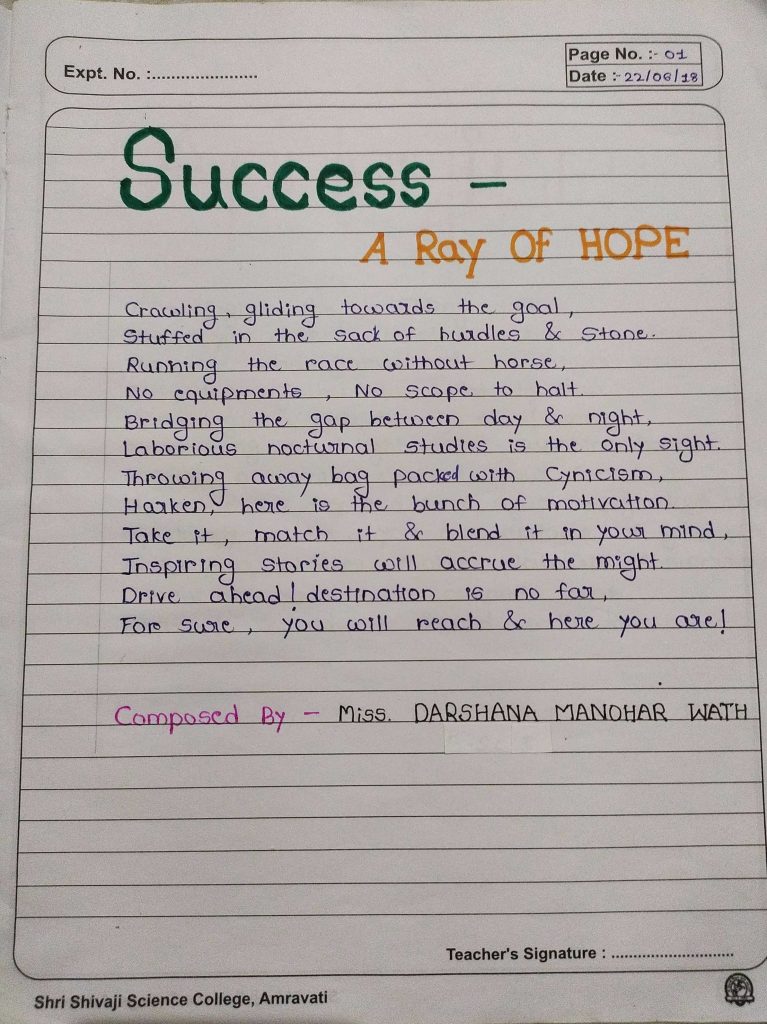 Expt. No. :........................
Page No. :- 01
Date :- 22/06/18
Success -
A Ray Of HOPE
Crawling, gliding towards the goal,
Stuffed in the sack of hurdles & stone.
Running the race without horse,
No equipments, No scope to halt.
Bridging the gap between day & night,
Laborious nocturnal studies is the only sight.
Throwing away bag packed with Cynicism,
Harken, here is the bunch of motivation.
Take it, match it & blend it in your mind,
Inspiring stories will accrue the might.
Drive ahead! destination is no far,
For sure, you will reach & here you are!
Composed By - Miss. DARSHANA MANOHAR WATH
Teacher's Signature : ............................
Shri Shivaji Science College, Amravati